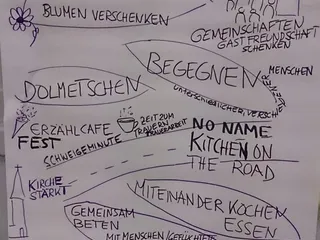 BLUMEN VERSCHENKEN
GEMEINSCHAFTEN
GASTFREUNDSCHAFT
SCHENKEN
BEGEGNEN
MENSCHEN
DOLMETSCHEN
ERZÄHLCAFE
FEST
ZEIT ZUM
TRAUERN
TRAUERARBEIT
SCHWEIGEMINUTE
NO NAME
KITCHEN ON
THE ROAD
KIRCHE
STÄRKT
MITEINANDER KOCHEN
ESSEN
GEMEINSAM
BETEN
MIT MENSCHEN